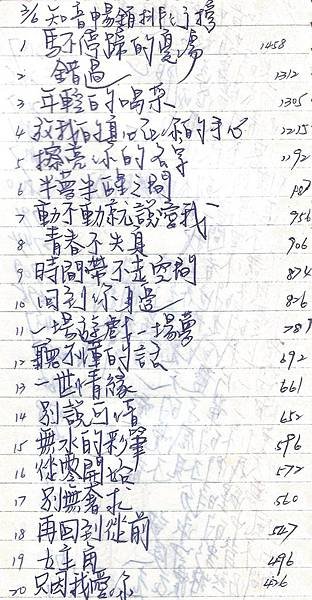 3/6 知音暢銷排行榜
1 馬不停蹄的憂傷 1458
2 錯過 1312
3 年輕的喝采 1305
4 放我的真心在你的手心 1215
5 擦亮你的名字 1192
6 半夢半醒之間 1187
7 動不動就說愛我 956
8 青春不失真 906
9 時間帶不走空間 874
10 回到你身邊 826
11 一場遊戲一場夢 787
12 聽不懂的話 692
13 一世情緣 661
14 別說可惜 652
15 無水的彩筆 596
16 從零開始 572
17 別無奢求 560
18 再回到從前 547
19 女主角 496
20 只因我愛你 426